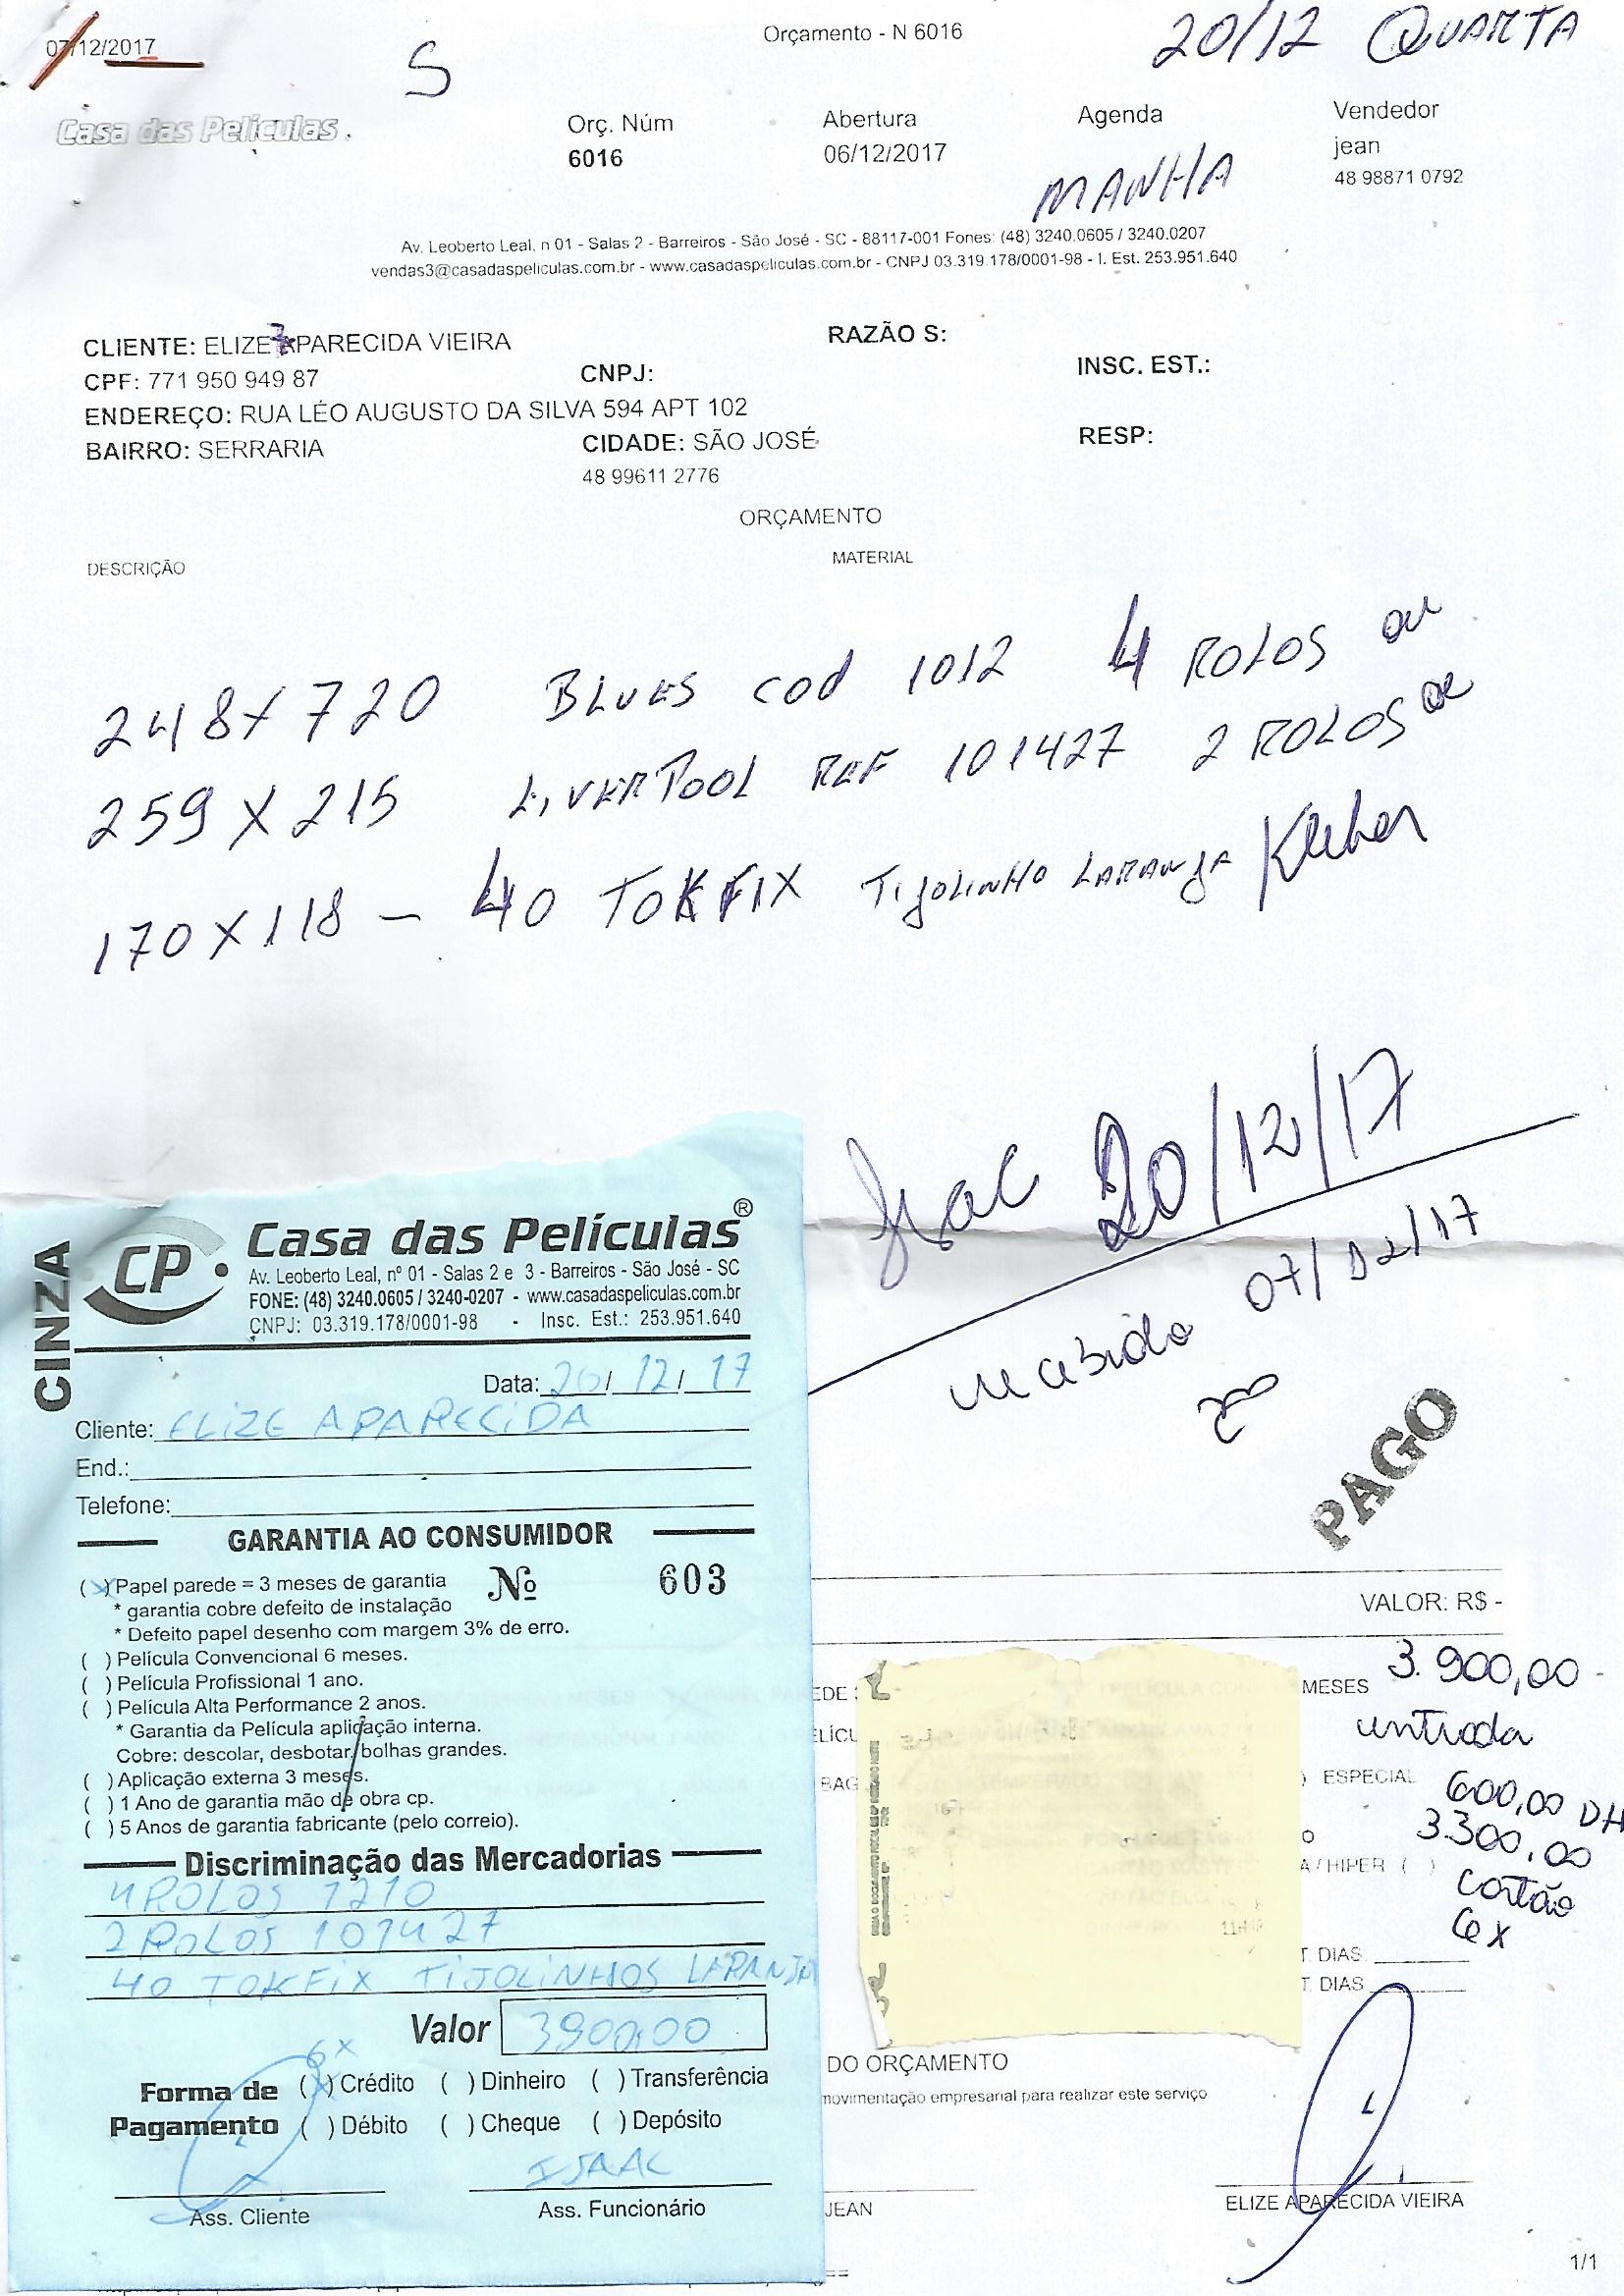 07/12/2017
Orçamento - N 6016
20/12 QUARTA
S
Casa das Películas.
Orç. Núm
Abertura
Agenda
Vendedor
6016
06/12/2017
MANHA
jean
48 98871 0792
Av. Leoberto Leal, n 01 - Salas 2 - Barreiros - São José - SC - 88117-001 Fones: (48) 3240.0605 / 3240.0207
vendas3@casadaspeliculas.com.br - www.casadaspeliculas.com.br - CNPJ 03.319.178/0001-98 - I. Est. 253.951.640
CLIENTE: ELIZE APARECIDA VIEIRA
RAZÃO S:
CPF: 771 950 949 87
CNPJ:
INSC. EST.:
ENDEREÇO: RUA LÉO AUGUSTO DA SILVA 594 APT 102
BAIRRO: SERRARIA
CIDADE: SÃO JOSÉ
RESP:
48 99611 2776
ORÇAMENTO
DESCRIÇÃO
MATERIAL
248 X 720 BLUES COD 1012 4 ROLOS
259 X 215 LIVERPOOL REF 101427 2 ROLOS
170 X 118 - 40 TOKFIX TIJOLINHO LARANJA Kleber
Isac 20/12/17
recebido 07/12/17
PAGO
VALOR: R$ -
3.900,00
MESES
entrada
ESPECIAL
600,00 DH
3.300,00
A / HIPER ( )
cartão
6x
T. DIAS
T. DIAS
DO ORÇAMENTO
movimentação empresarial para realizar este serviço
JEAN
ELIZE APARECIDA VIEIRA
1/1
CINZA
CP
Casa das Películas®
Av. Leoberto Leal, nº 01 - Salas 2 e 3 - Barreiros - São José - SC
FONE: (48) 3240.0605 / 3240-0207 - www.casadaspeliculas.com.br
CNPJ: 03.319.178/0001-98 - Insc. Est.: 253.951.640
Data: 20/ 12/ 17
Cliente: ELIZE APARECIDA
End.:
Telefone:
GARANTIA AO CONSUMIDOR
(X) Papel parede = 3 meses de garantia
Nº 603
* garantia cobre defeito de instalação
* Defeito papel desenho com margem 3% de erro.
( ) Película Convencional 6 meses.
( ) Película Profissional 1 ano.
( ) Película Alta Performance 2 anos.
* Garantia da Película aplicação interna.
Cobre: descolar, desbotar, bolhas grandes.
( ) Aplicação externa 3 meses.
( ) 1 Ano de garantia mão de obra cp.
( ) 5 Anos de garantia fabricante (pelo correio).
Discriminação das Mercadorias
4 ROLOS 1210
2 ROLOS 101427
40 TOKFIX TIJOLINHOS LARANJA
Valor 3900,00
6x
Forma de Pagamento
(X) Crédito ( ) Dinheiro ( ) Transferência
( ) Débito ( ) Cheque ( ) Depósito
ISAAC
Ass. Cliente
Ass. Funcionário